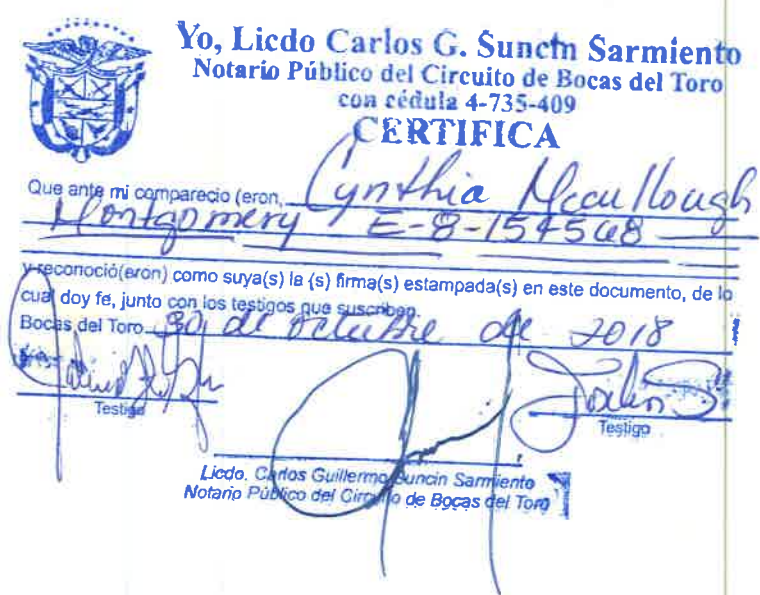 Yo, Licdo Carlos G. Suncín Sarmiento
Notario Público del Circuito de Bocas del Toro
con cédula 4-735-409
CERTIFICA
Que ante mi comparecio (eron, Cynthia Mccullough
Montgomery E-8-154568
y reconoció(eron) como suya(s) la (s) firma(s) estampada(s) en este documento, de lo
cual doy fé, junto con los testigos que suscriben.
Bocas del Toro 30 de octubre de 2018
Testigo
Testigo
Licdo. Carlos Guillermo Suncin Sarmiento
Notario Público del Circuito de Bocas del Toro